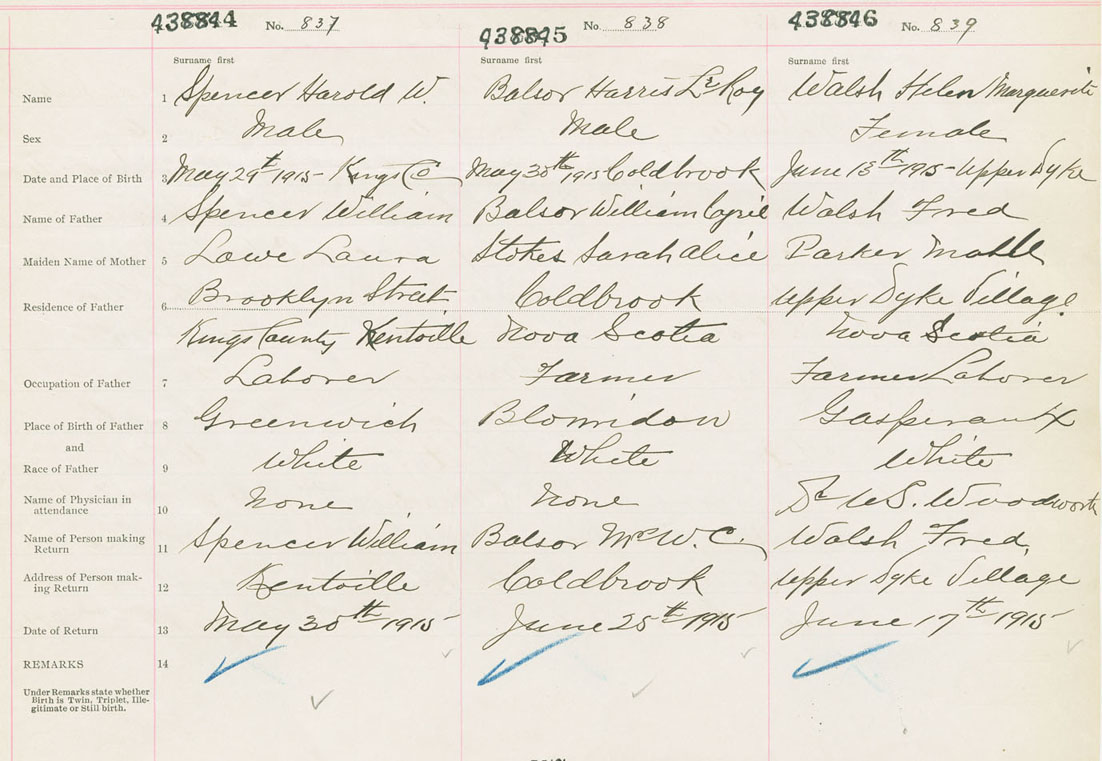 438844 No. 837 438845 No. 838 438846 No. 839
Surname first Surname first Surname first
Name 1 Spencer Harold W. Balsor Harris LeRoy Walsh Helen Marguerite
Sex 2 Male Male Female
Date and Place of Birth 3 May 29t 1915 - Kings Co May 30th 1915 Coldbrook June 13th 1915 - Upper Dyke
Name of Father 4 Spencer William Balsor William Cyril Walsh Fred
Maiden Name of Mother 5 Lowe Laura Stokes Sarah Alice Parker Mable
Residence of Father 6 Brooklyn Street Coldbrook Upper Dyke Village
Kings County Kentville Nova Scotia Nova Scotia
Occupation of Father 7 Laborer Farmer Farmer Laborer
Place of Birth of Father 8 Greenwich Blomidon Gasperaux
and
Race of Father 9 White White White
Name of Physician in
attendance 10 None None Dr W.S. Woodworth
Name of Person making
Return 11 Spencer William Balsor Mr W. C. Walsh Fred
Address of Person mak-
ing Return 12 Kentville Coldbrook Upper Dyke Village
Date of Return 13 May 30th 1915 June 25th 1915 June 17th 1915
REMARKS 14
Under Remarks state whether
Birth is Twin, Triplet, Ille-
gitimate or Still birth.